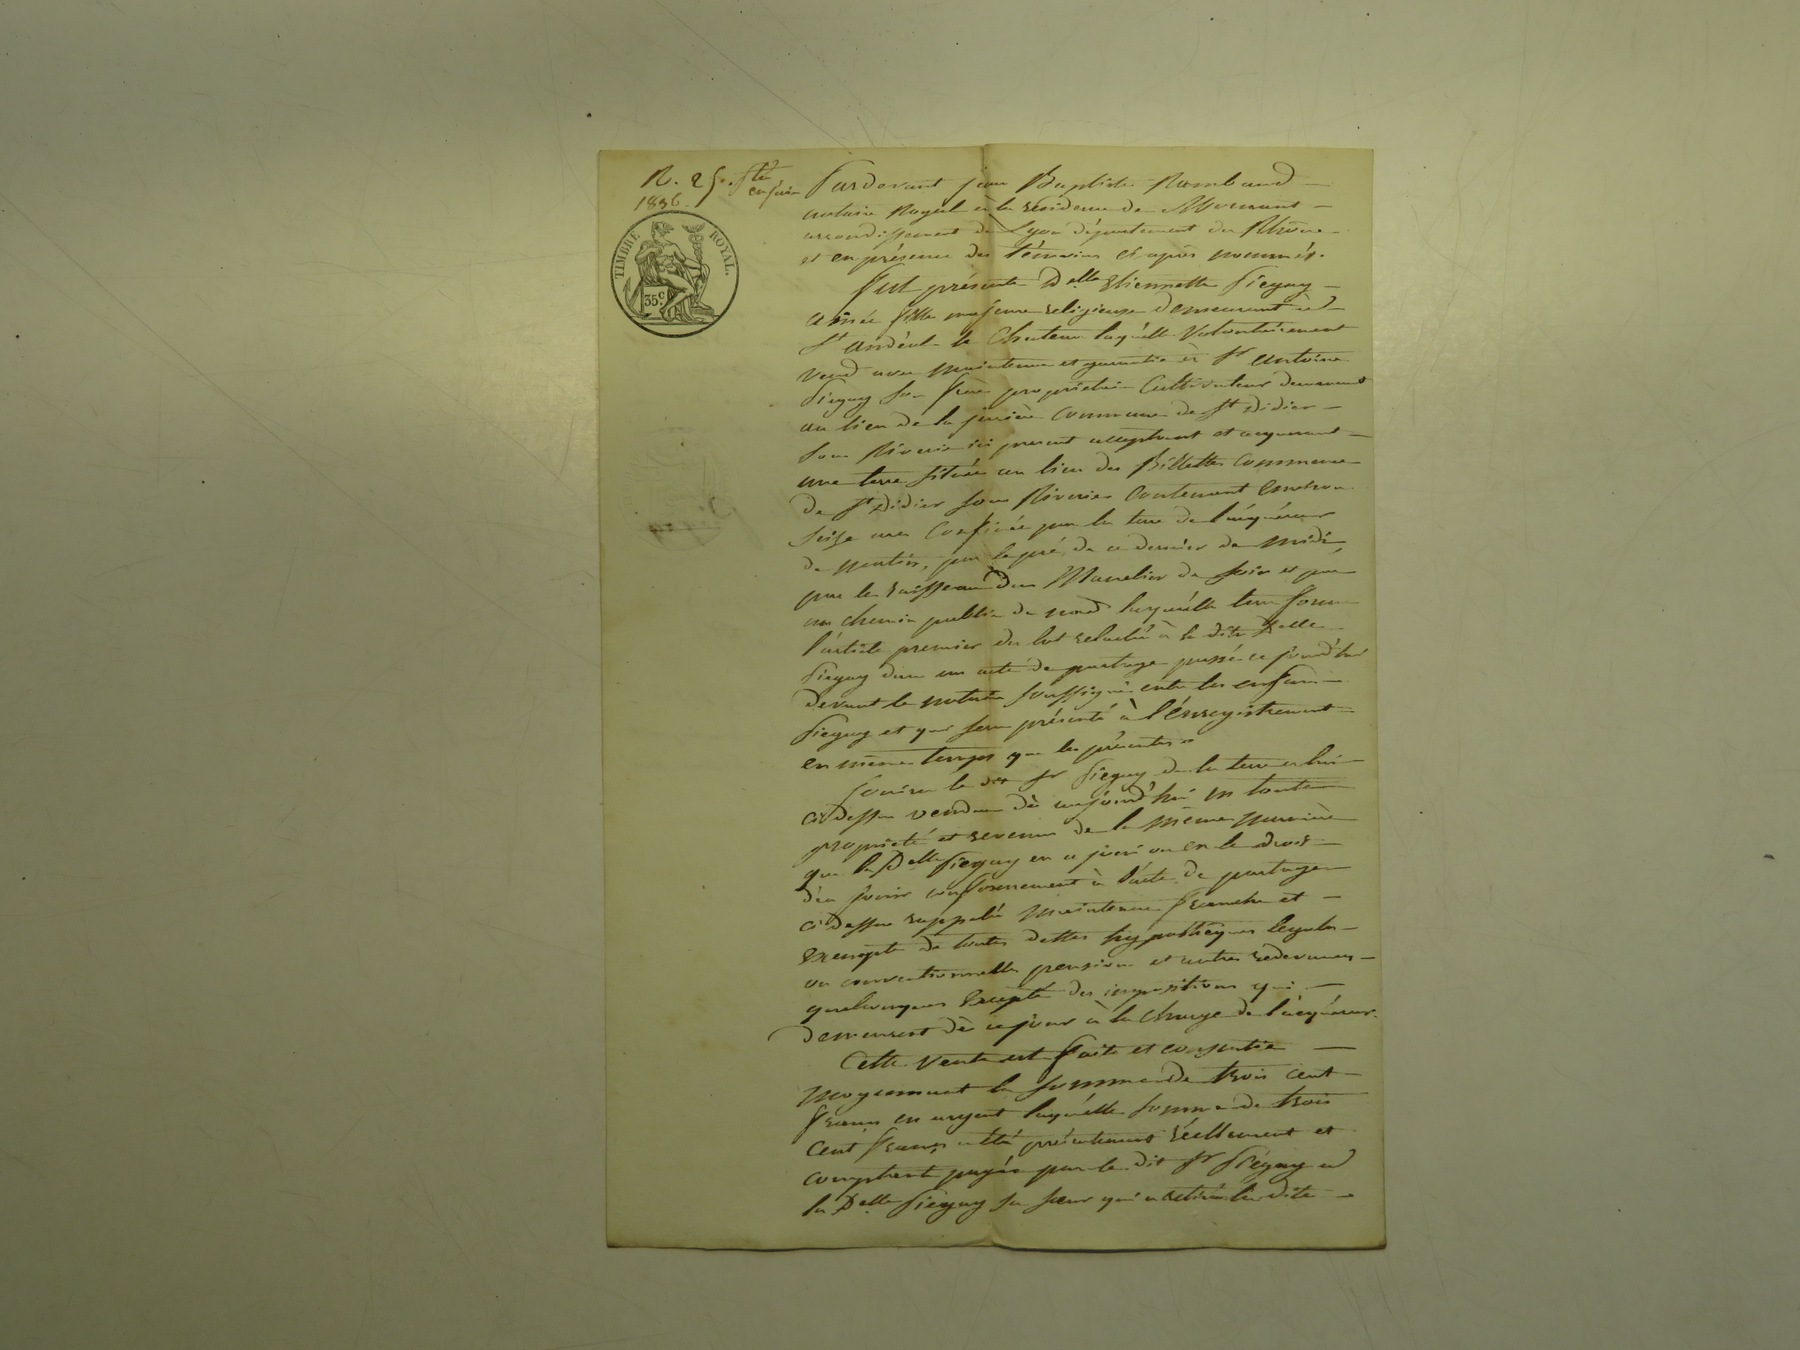 R. 25. 
1836.
TIMBRE ROYAL.
35c.
Pardevant jean Baptiste Rambaud
notaire Royal à la résidence de Mornant
arrondissement de Lyon département du Rhône
et en présence des témoins ci après nommés.
fut présente Delle Etiennette Piegay
ainée fille majeure religieuse demeurant à
St andéol le Chateau laquelle volontairement
vend avec maintenue et garantie à Sr antoine
Piegay son frère propriétaire Cultivateur demeurant
au lieu de la commune de St Didier
sous Riverie ici présent acceptant et acquerant
une terre située au lieu des Billettes commune
de St Didier sous Riverie Contenant environ
seize ares Confinée par la terre de l'acquéreur
de matin, par le pré de ce dernier de midi,
par le ruisseau du de soir et par
un chemin public de nord laquelle terre forme
l'article premier du lot relaché à la dite Delle
Piegay dans un acte de partage passé ce jourd'hui
devant le notaire soussigné entre les enfans
Piegay et qui sera présenté à l'énregistrement
en même temps que les présentes
Jouira le dit Sr Piegay de la terre à lui
ci dessus vendue dès aujourd'hui en toute
propriété et revenus de la même manière
que la Delle Piegay en a joui ou eu le droit
d'en jouir conformement à l'acte de partage
ci dessus rappelé maintenue franche et
exempte de toutes dettes hypothèques legales
ou conventionnelles pensions et autres redevances
quelconques Excepté des impositions qui
demeurent dès ce jour à la charge de l'acquéreur.
Cette vente est faite et consentie
moyennant la somme de trois cent
francs en argent laquelle somme de trois
cent francs a été présentement réellement et
comptant payée par le dit Sr Piégay à
la Delle Piegay sa sœur qui a retiré la dite